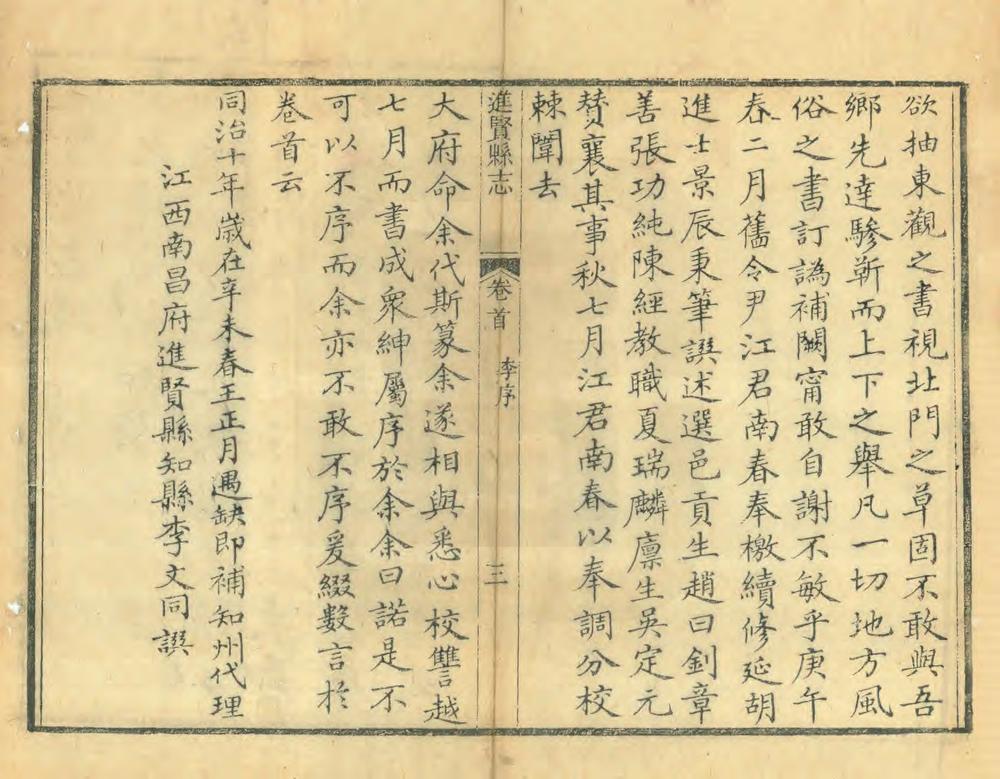 欲抽東觀之書視北門之草固不敢與吾
鄉先達驂靳而上下之舉凡一切地方風
俗之書訂譌補闕甯敢自謝不敏乎庚午
春二月舊令尹江君南春奉檄續修延胡
進士景辰秉筆譔述選邑貢生趙曰釗章
善張功純陳經教職夏瑞麟廪生吳定元
賛襄其事秋七月江君南春以奉調分校
棘闈去
進賢縣志
卷首
李序
三
大府命余代斯篆余遂相與悉心校讐越
七月而書成衆紳屬序於余余曰諾是不
可以不序而余亦不敢不序爰綴数言於
卷首云
同治十年歲在辛未春王正月遇缺即補知州代理
江西南昌府進賢縣知縣李文同譔